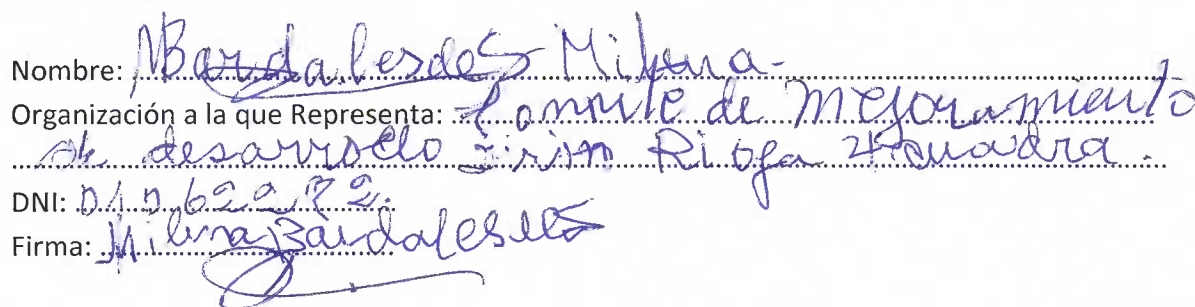 Nombre: Bardales des Milena
Organización a la que Representa: Comite de Mejoramiento
de desarrollo Jiron Rioja 4 cuadra.
DNI: 01062272
Firma: Milena Bardales